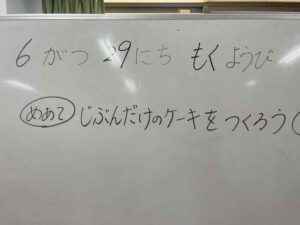 6 がつ 29にち もくようび
めあて じぶんだけのケーキを つくろう